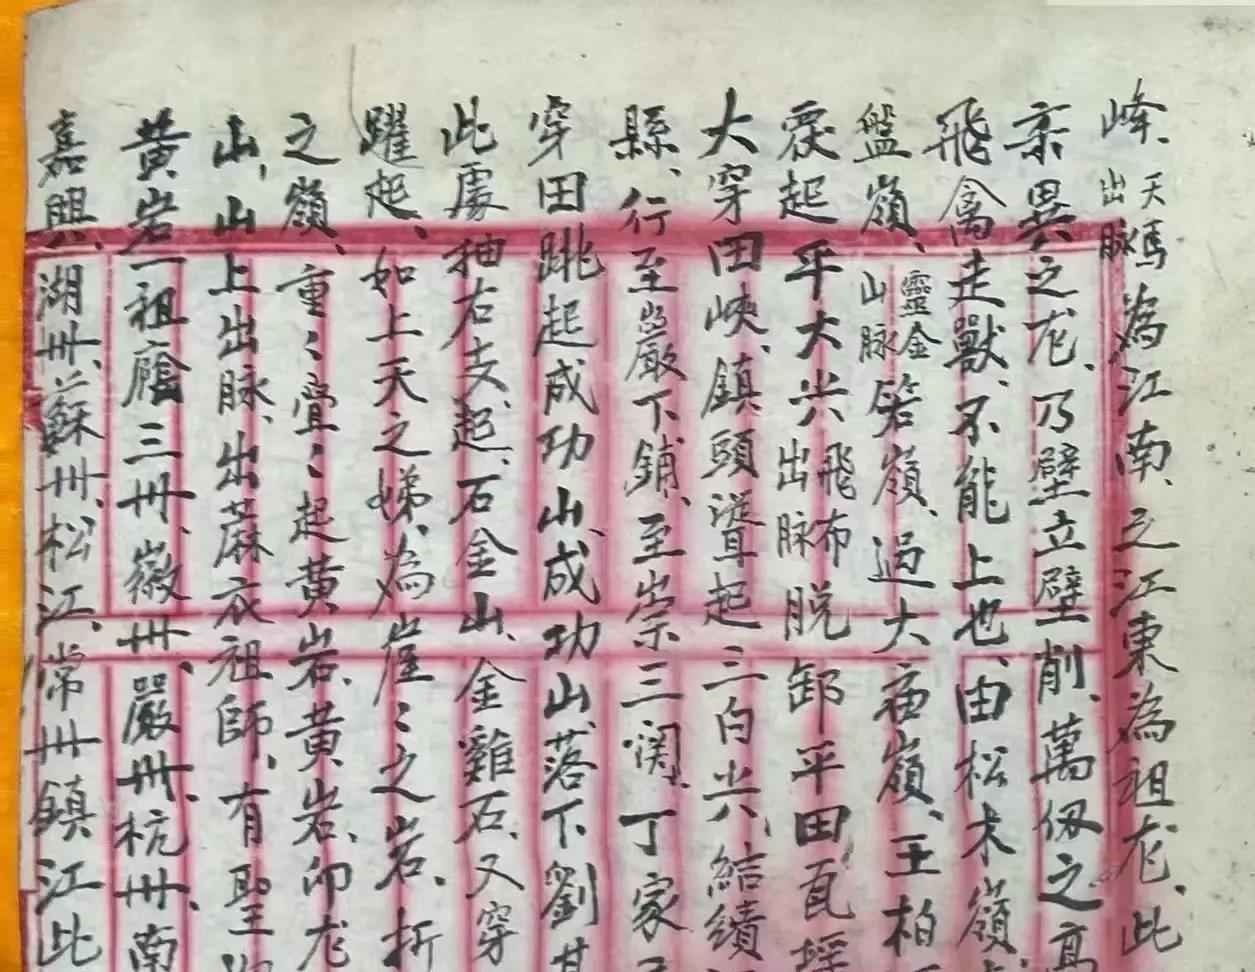 峰、天馬出脉為江南、之江東為祖龙、此
柰異之龙、乃壁立壁削、萬仭之高
飛禽走獸、不能上也、由松木嶺
盤嶺、靈金山脉箬嶺、過大庙嶺、王柏
衮起平大尖飛布出脉脱卸平田瓦
大穿田峽、鎮頭聳起三白尖、結績
縣、行至巖下鋪、至崇三濶、丁家
穿田跳起成功山、成功山落下劉
此處抽右支、起、石金山、金雞石、又穿
躍起、如上天之娣、為崖〻之岩、折
之嶺、重〻疊〻起黄岩、黄岩、印龙
山、山上出脉、出蔴衣祖師、有聖
黄岩一祖廕三州、徽州、嚴州、杭州、南
嘉興、湖州、蘇州、松江、常州鎮江此